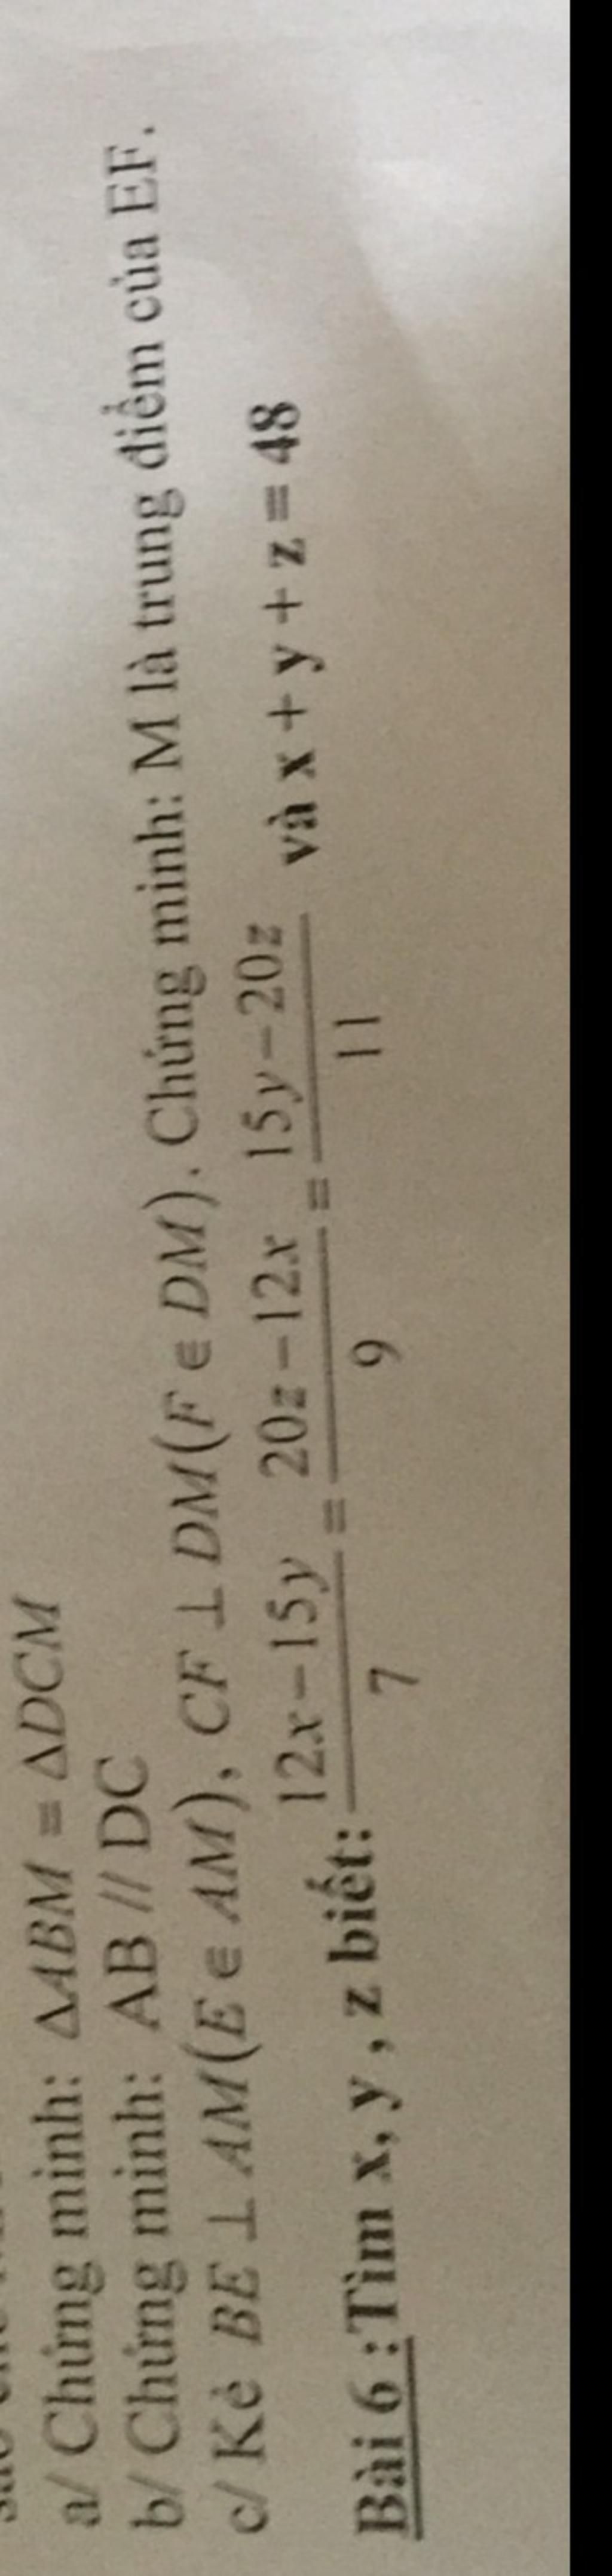 a/ Chứng minh: ΔABM = ΔDCM
b/ Chứng minh: AB // DC
c/ Kẻ BE ⊥ AM(E ∈ AM), CF ⊥ DM(F ∈ DM). Chứng minh: M là trung điểm của EF.
Bài 6 : Tìm x, y , z biết: (12x−15y)/7 = (20z−12x)/9 = (15y−20z)/11 và x + y + z = 48